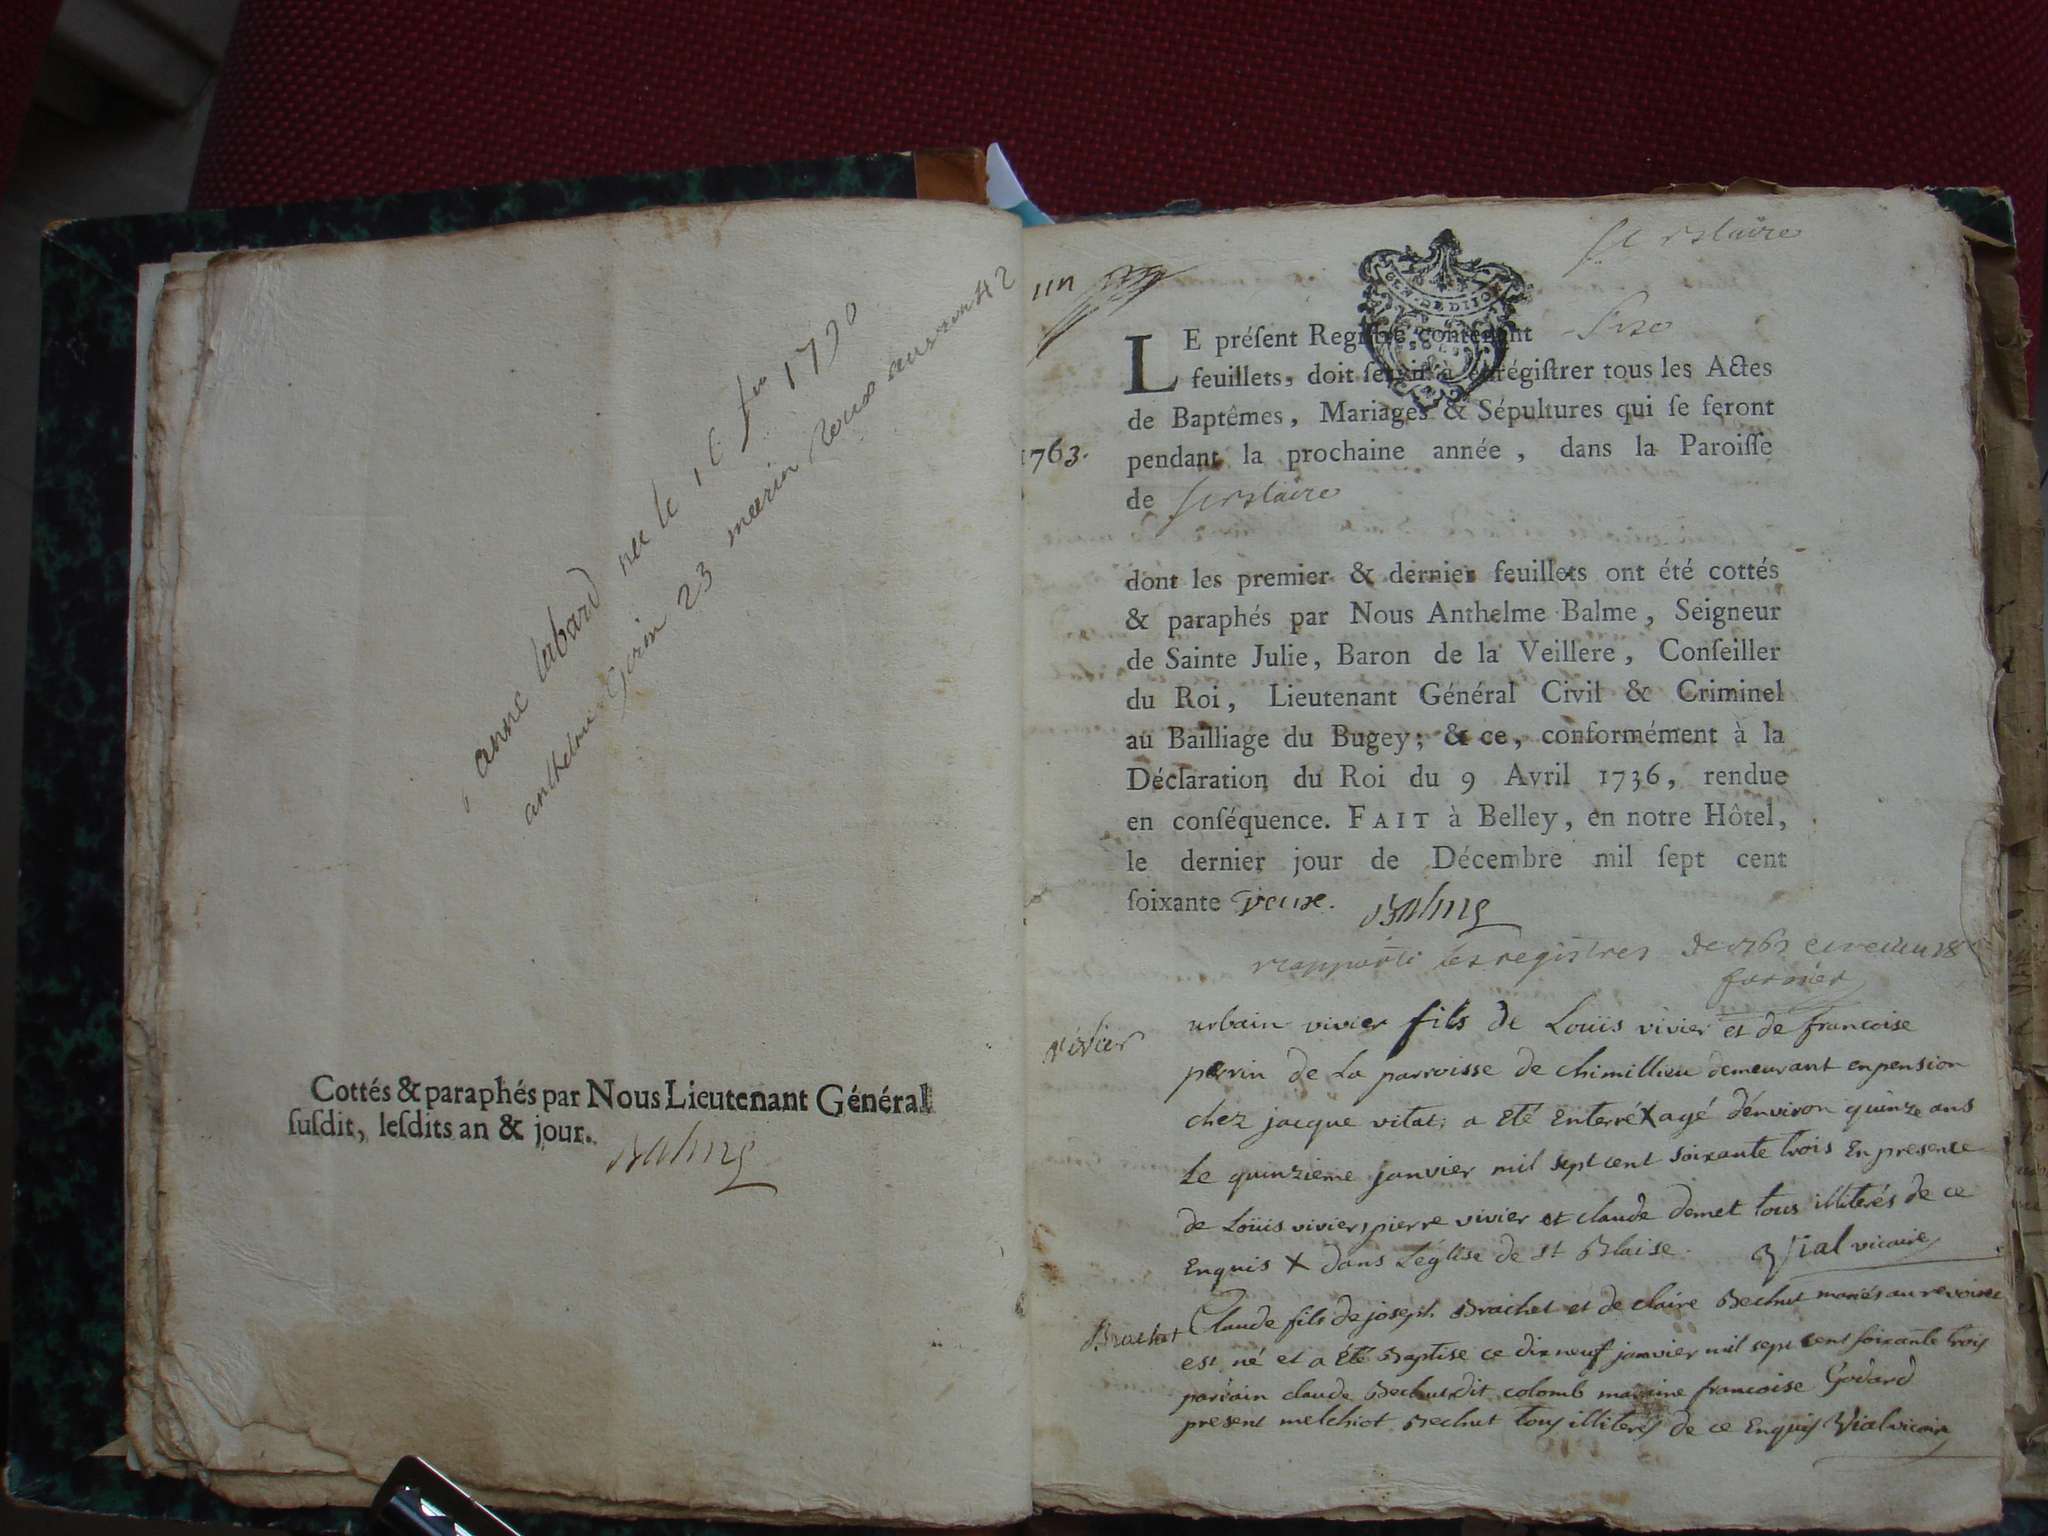 anne labard nee le 16 1790
anthelme 23
Cottés & paraphés par Nous Lieutenant Général
ſuſdit, leſdits an & jour.
Balme
un
GEN. DE DIJON
LE préſent Regiſtre contenant
feuillets, doit ſervir à enrégiſtrer tous les Actes
de Baptêmes, Mariages & Sépultures qui ſe feront
1763. pendant la prochaine année, dans la Paroiſſe
de
dont les premier & dernier feuillets ont été cottés
& paraphés par Nous Anthelme Balme, Seigneur
de Sainte Julie, Baron de la Veillere, Conſeiller
du Roi, Lieutenant Général Civil & Criminel
au Bailliage du Bugey; & ce, conformément à la
Déclaration du Roi du 9 Avril 1736, rendue
en conſéquence. FAIT à Belley, en notre Hôtel,
le dernier jour de Décembre mil ſept cent
ſoixante Deux. Balme
rapporté les registres de
vivier
urbain vivier fils de Loüis vivier et de francoise
perrin de La parroisse de Chimillieu demeurant en pension
chez jacque vitat; a Eté Enterré X agé d'énviron quinze ans
Le quinzieme janvier mil sept cent soixante trois En presence
de Loüis vivier, pierre vivier et claude demet tous illiterés de ce
Enquis X dans L'église de st Blaise. Vial vicaire
Brachet
Claude fils de joseph Brachet et de claire Bechut mariés au
est né et a été Baptise ce dix neuf janvier mil sept cent soixante trois
parrain claude Bechut dit colomb marraine francoise Godard
present melchiot Bechut tous illiterés de ce Enquis Vial vicaire